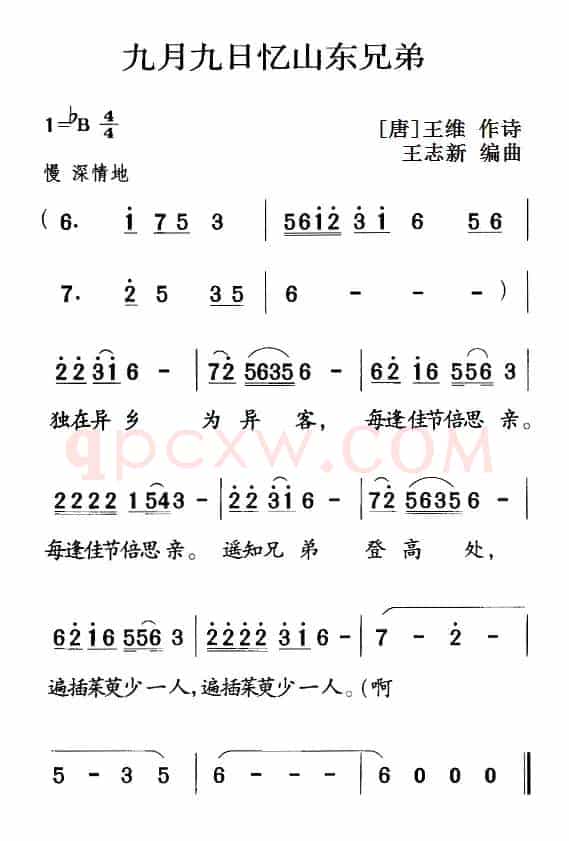 九月九日忆山东兄弟
1=♭B 4/4
[唐]王维 作诗
王志新 编曲
慢 深情地
( 6. 1 7 5 3 | 5 6 1 2 3 1 6 5 6 |
7. 2 5 3 5 | 6 - - - )
2 2 3 1 6 - | 7 2 5 6 3 5 6 - | 6 2 1 6 5 5 6 3 |
独在异乡 为异客， 每逢佳节倍思亲。
qpcxw.com
2 2 2 2 1 5 4 3 - | 2 2 3 1 6 - | 7 2 5 6 3 5 6 -
每逢佳节倍思亲。 遥知兄弟 登高处，
6 2 1 6 5 5 6 3 | 2 2 2 2 3 1 6 - | 7 - 2 -
遍插茱萸少一人，遍插茱萸少一人。(啊
5 - 3 5 | 6 - - - | 6 0 0 0 ‖